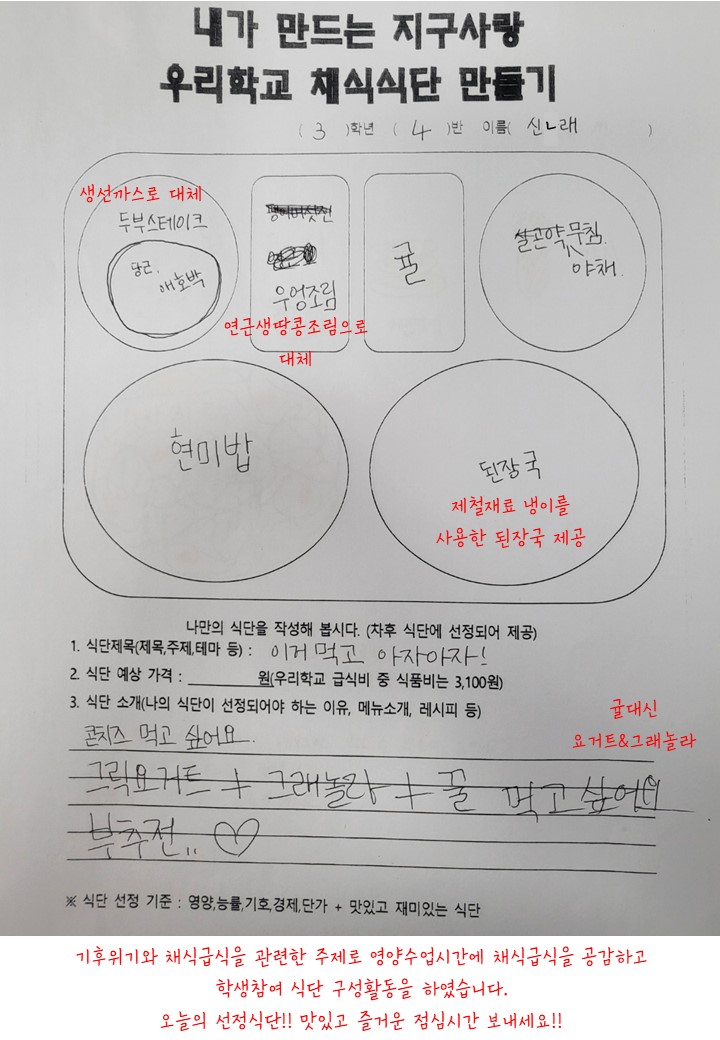 내가 만드는 지구사랑
우리학교 채식식단 만들기
( 3 )학년 ( 4 )반 이름( 신ㄴ래 )
생선까스로 대체
두부스테이크
당근.
애호박
우엉조림
연근생땅콩조림으로
대체
귤
실곤약 무침.
야채.
현미밥
된장국
제철재료 냉이를
사용한 된장국 제공
나만의 식단을 작성해 봅시다. (차후 식단에 선정되어 제공)
1. 식단제목(제목,주제,테마 등) : 이거 먹고 아자아자!
2. 식단 예상 가격 : 원(우리학교 급식비 중 식품비는 3,100원)
3. 식단 소개(나의 식단이 선정되어야 하는 이유, 메뉴소개, 레시피 등)
귤대신
요거트&그래놀라
콘치즈 먹고 싶어요.
그릭요거트 + 그래놀라 + 꿀 먹고싶어요
부추전..
※ 식단 선정 기준 : 영양,능률,기호,경제,단가 + 맛있고 재미있는 식단
기후위기와 채식급식을 관련한 주제로 영양수업시간에 채식급식을 공감하고
학생참여 식단 구성활동을 하였습니다.
오늘의 선정식단!! 맛있고 즐거운 점심시간 보내세요!!